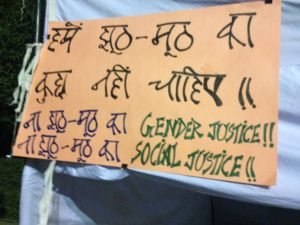 हमें झूठ-मूठ का
कुछ नहीं चाहिए !!
ना झूठ-मूठ का GENDER JUSTICE!!
ना झूठ-मूठ का SOCIAL JUSTICE!!